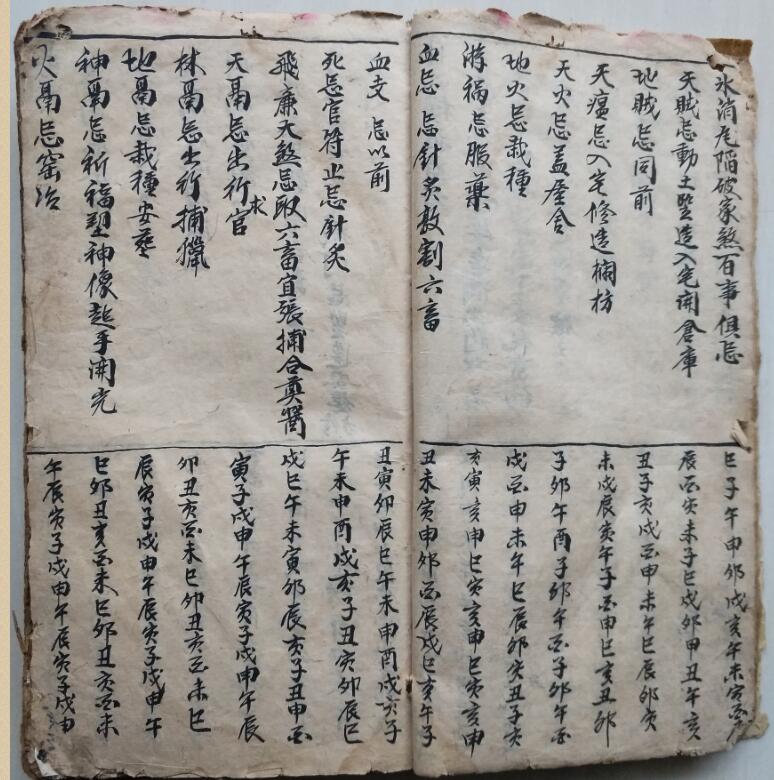 氷消瓦陷破家煞百事俱忌
天賊忌動土竪造入宅開倉庫
地賊忌同前
天瘟忌入宅修造欄枋
天火忌盖屋舍
地火忌栽種
游禍忌服藥
血忌 忌針炙敎割六畜
巳子午申卯戌亥午未寅酉辰
辰酉寅未子巳戌卯申丑午亥
丑子亥戌酉申未午巳辰卯寅
未戌辰寅午子酉申巳亥丑卯
子卯午酉子卯午酉子卯午酉
戌酉申未午巳辰卯寅丑子亥
亥寅亥申巳寅亥申巳寅亥申
丑未寅申卯酉辰戌巳亥午子
血支 忌以前
死忌官符止忌針炙
飛廉大煞忌取六畜宜張捕合奠醬
天鬲忌出行求官
林鬲忌出行捕獵
地鬲忌栽種安葬
神鬲忌祈福塑神像起手開光
火鬲忌窑冶
丑寅卯辰巳午未申酉戌亥子
午未申酉戌亥子丑寅卯辰巳
戌巳午未寅卯辰亥子丑申酉
寅子戌申午辰寅子戌申午辰
卯丑亥酉未巳卯丑亥酉未巳
辰寅子戌申午辰寅子戌申午
巳卯丑亥酉未巳卯丑亥酉未
午辰寅子戌申午辰寅子戌申